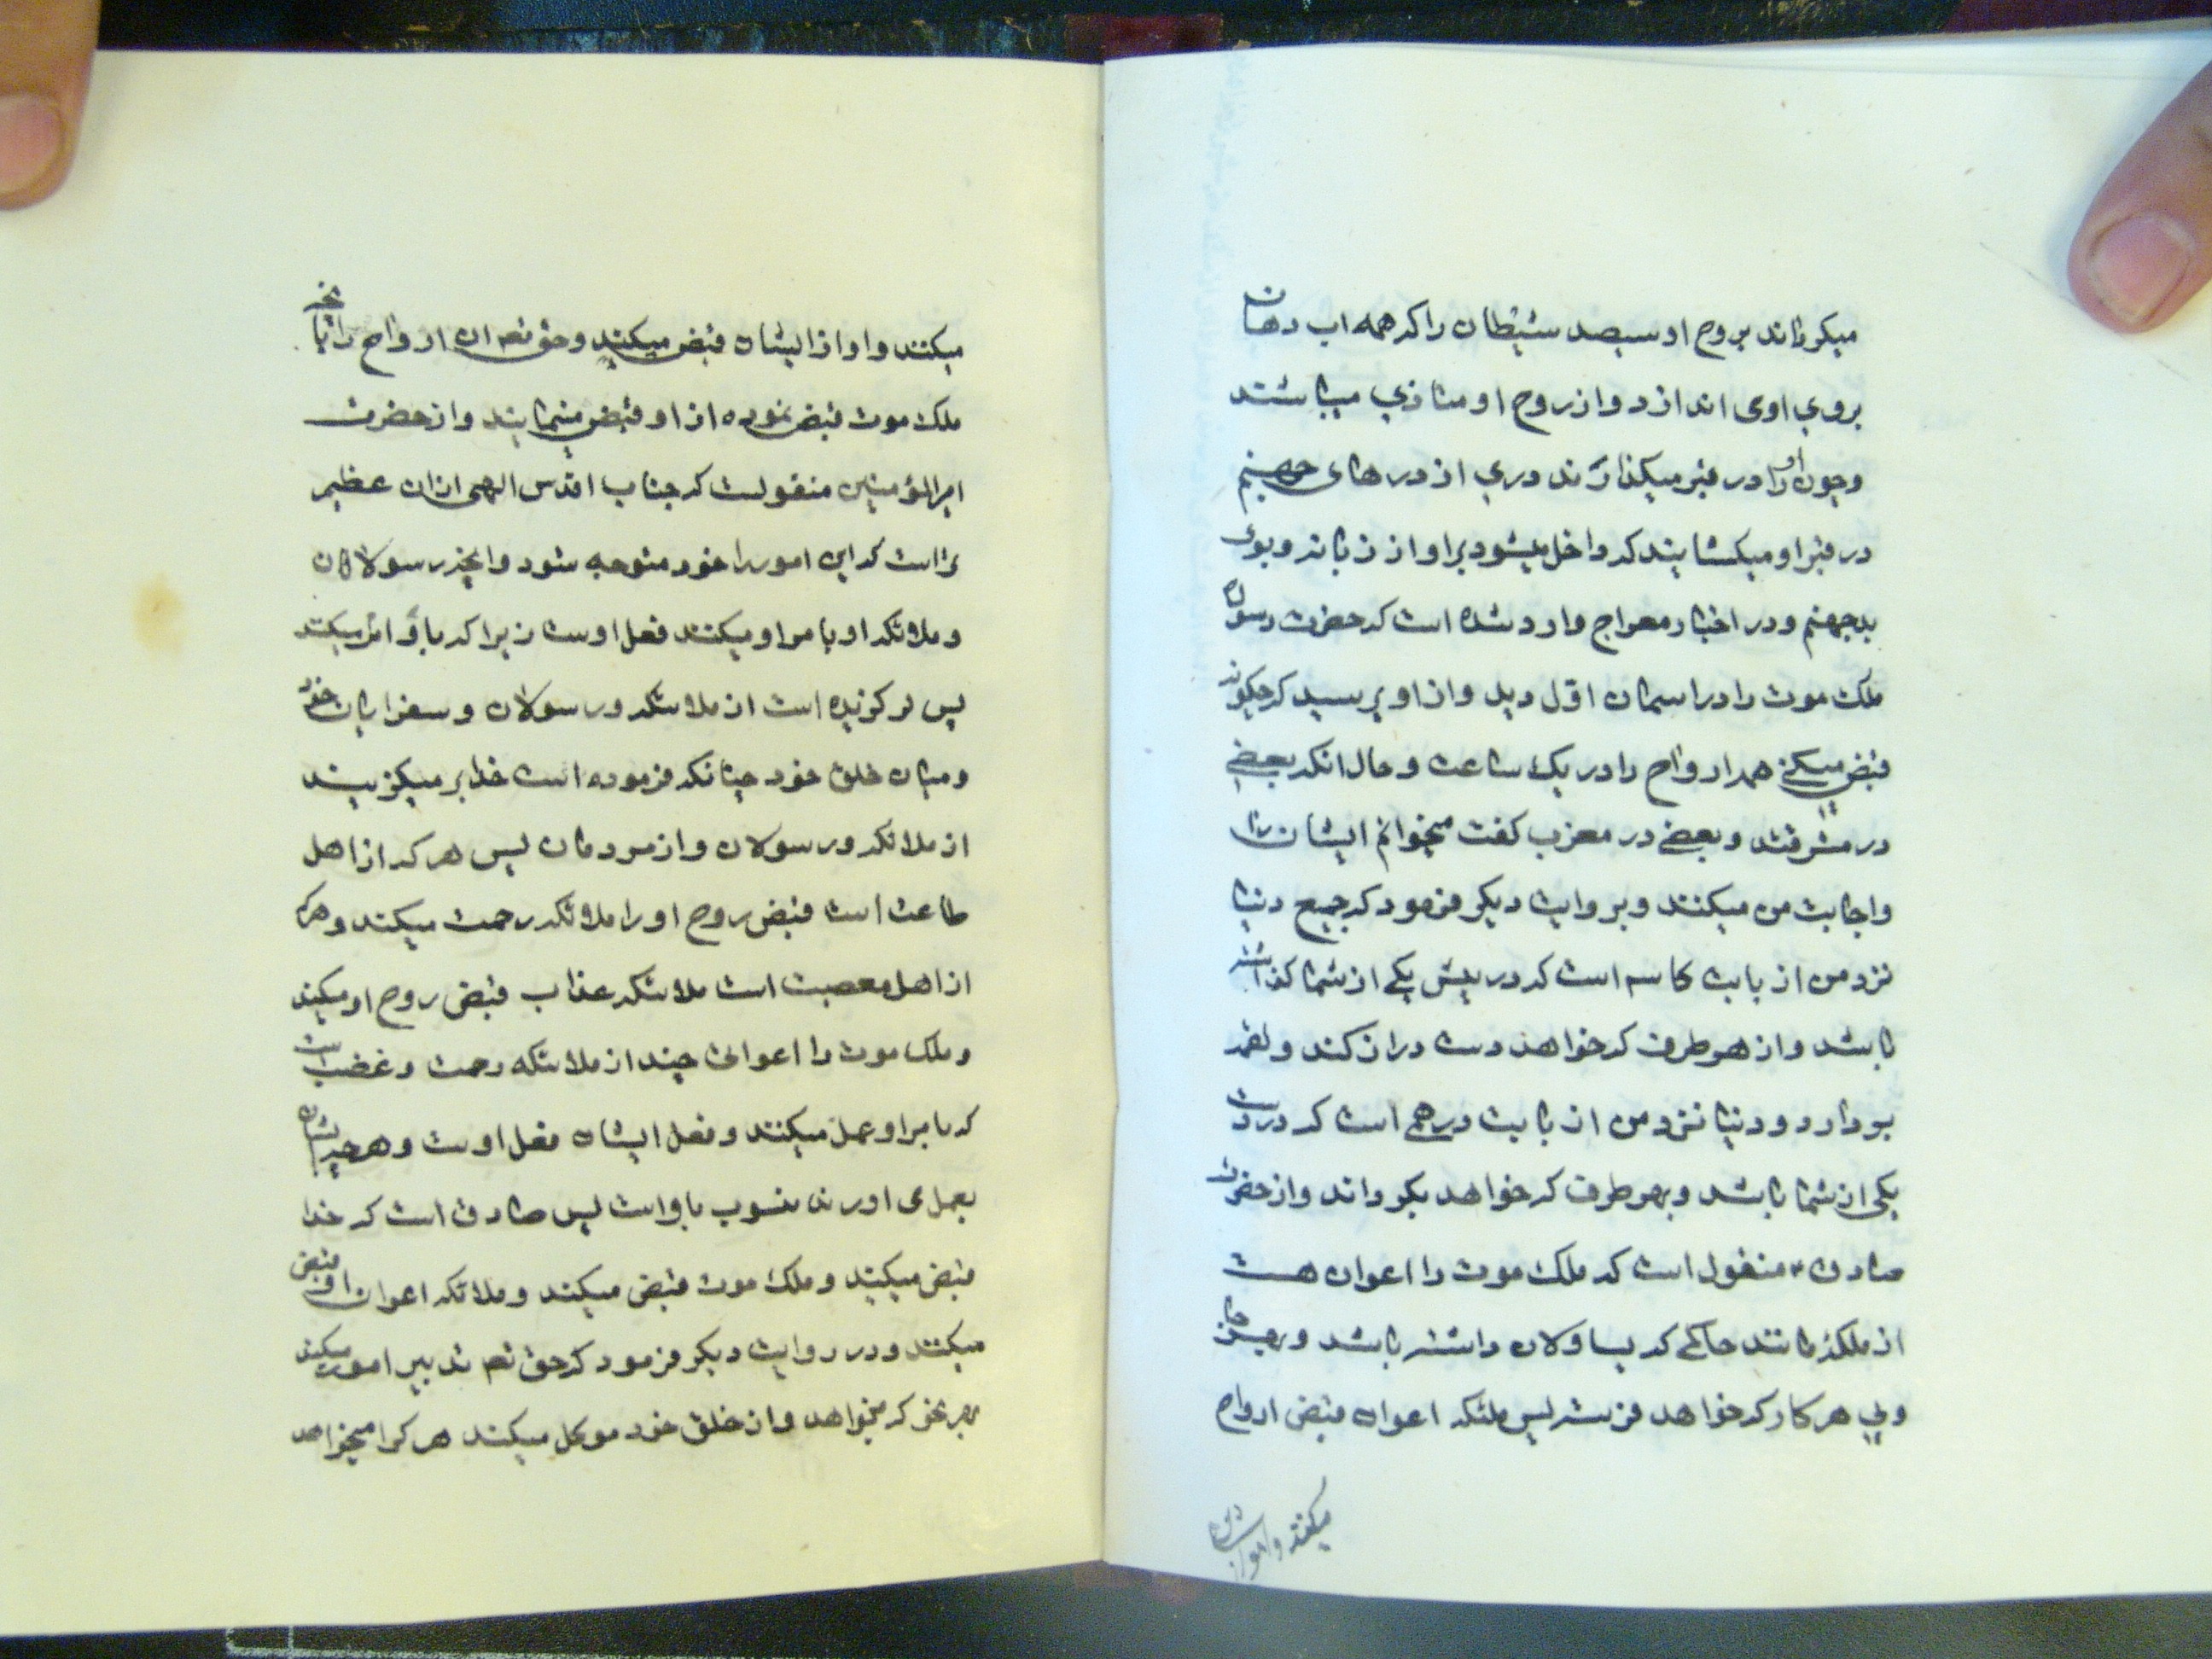 میکرداند بروح او سیصد شیطان را که همه اب دهان
بروی اوی اندازد و از روح او متاذی میباشند
وچون او را در قبر میکذارند دری از درهای جهنم
در قبر او میکشایند که داخل میشود براو از زبانه و بوی
بد جهنم و در اخبار معراج وارد شده است که حضرت رسول
ملک موت را در اسمان اول دید و از او پرسید که چکونه
قبض میکنی همه ارواح را در یک ساعت و حال انکه بعضی
در مشرقند و بعضی در مغرب کفت میخوانم ایشان را
واجابت من میکنند و بروایت دیکر فرمود که جمیع دنیا
نزد من از بابت کاسه است که در پیش یکی از شما کذاشته
باشد و از هر طرف که خواهد دست دراز کند و لقمه
بردارد و دنیا نزد من از بابت درهمی است که در دست
یکی از شما باشد و بهر طرف که خواهد بکرداند و از حضرت
صادق ع منقول است که ملک موت را اعوان هست
از ملئکه مانند حاکمی که یساولان داشته باشد و بهر جا
وپی هر کار که خواهد فرستد پس ملئکه اعوان قبض ارواح
میکنند و او از
میکنند و او از ایشان قبض میکند و حق تعم ان ارواح را با انچه
ملک موت قبض نموده از او قبض مینماید و از حضرت
امیرالمؤمنین منقولست که جناب اقدس الهی ازان عظیم
تراست که این امور را خود متوجه شود وانچه رسولان
و ملائکه او بامر او میکنند فعل اوست زیرا که باو امر میکند
پس برکزیده است از ملائکه و رسولان و سفرا میان خود
و میان خلق خود چنانکه فرموده است خدا بر میکزیند
از ملائکه و رسولان و از مردمان پس هر که از اهل
طاعت است قبض روح او را ملائکه رحمت میکنند و هرکه
از اهل معصیت است ملائکه عذاب قبض روح او میکنند
و ملک موت را اعوانی چند از ملائکه رحمت و غضب است
که بامر او عمل میکنند و فعل ایشان فعل اوست و هرچه ایشان
بعمل می اورند منسوب باواست پس صادق است که خدا
قبض میکند و ملک موت قبض میکند و ملائکه اعوان او قبض
میکنند و در روایت دیکر فرمود که حق تعم تدبیر امور میکند
بهر نحو که میخواهد و از خلق خود موکل میکند هر کرا میخواهد